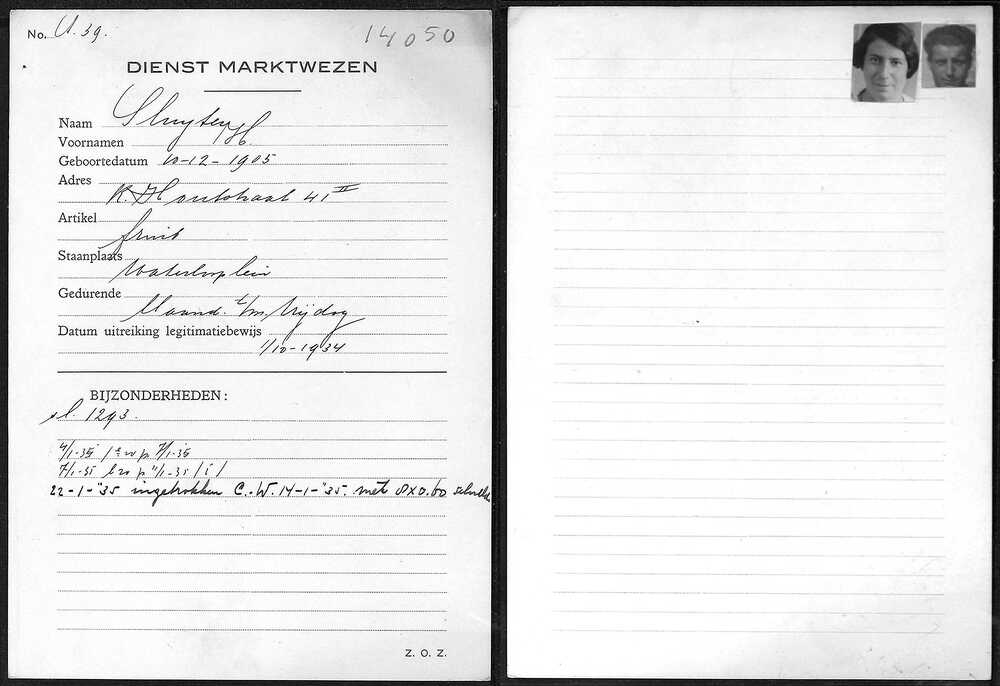 No. U. 39.
14050
DIENST MARKTWEZEN
Naam Sluyter, H.
Voornamen
Geboortedatum 10-12-1905
Adres
K. Houtstraat 41 II
Artikel
fruit
Staanplaats
Waterlooplein
Gedurende
Maand. t/m Vrijdag
Datum uitreiking legitimatiebewijs
1/10-1934
BIJZONDERHEDEN:
sl. 1293.
4/1-35 p 7/1-35
7/1-35 p 11/1-35
22-1-'35 ingetrokken C.W. 14-1-'35. met 8x0.60
Z. O. Z.